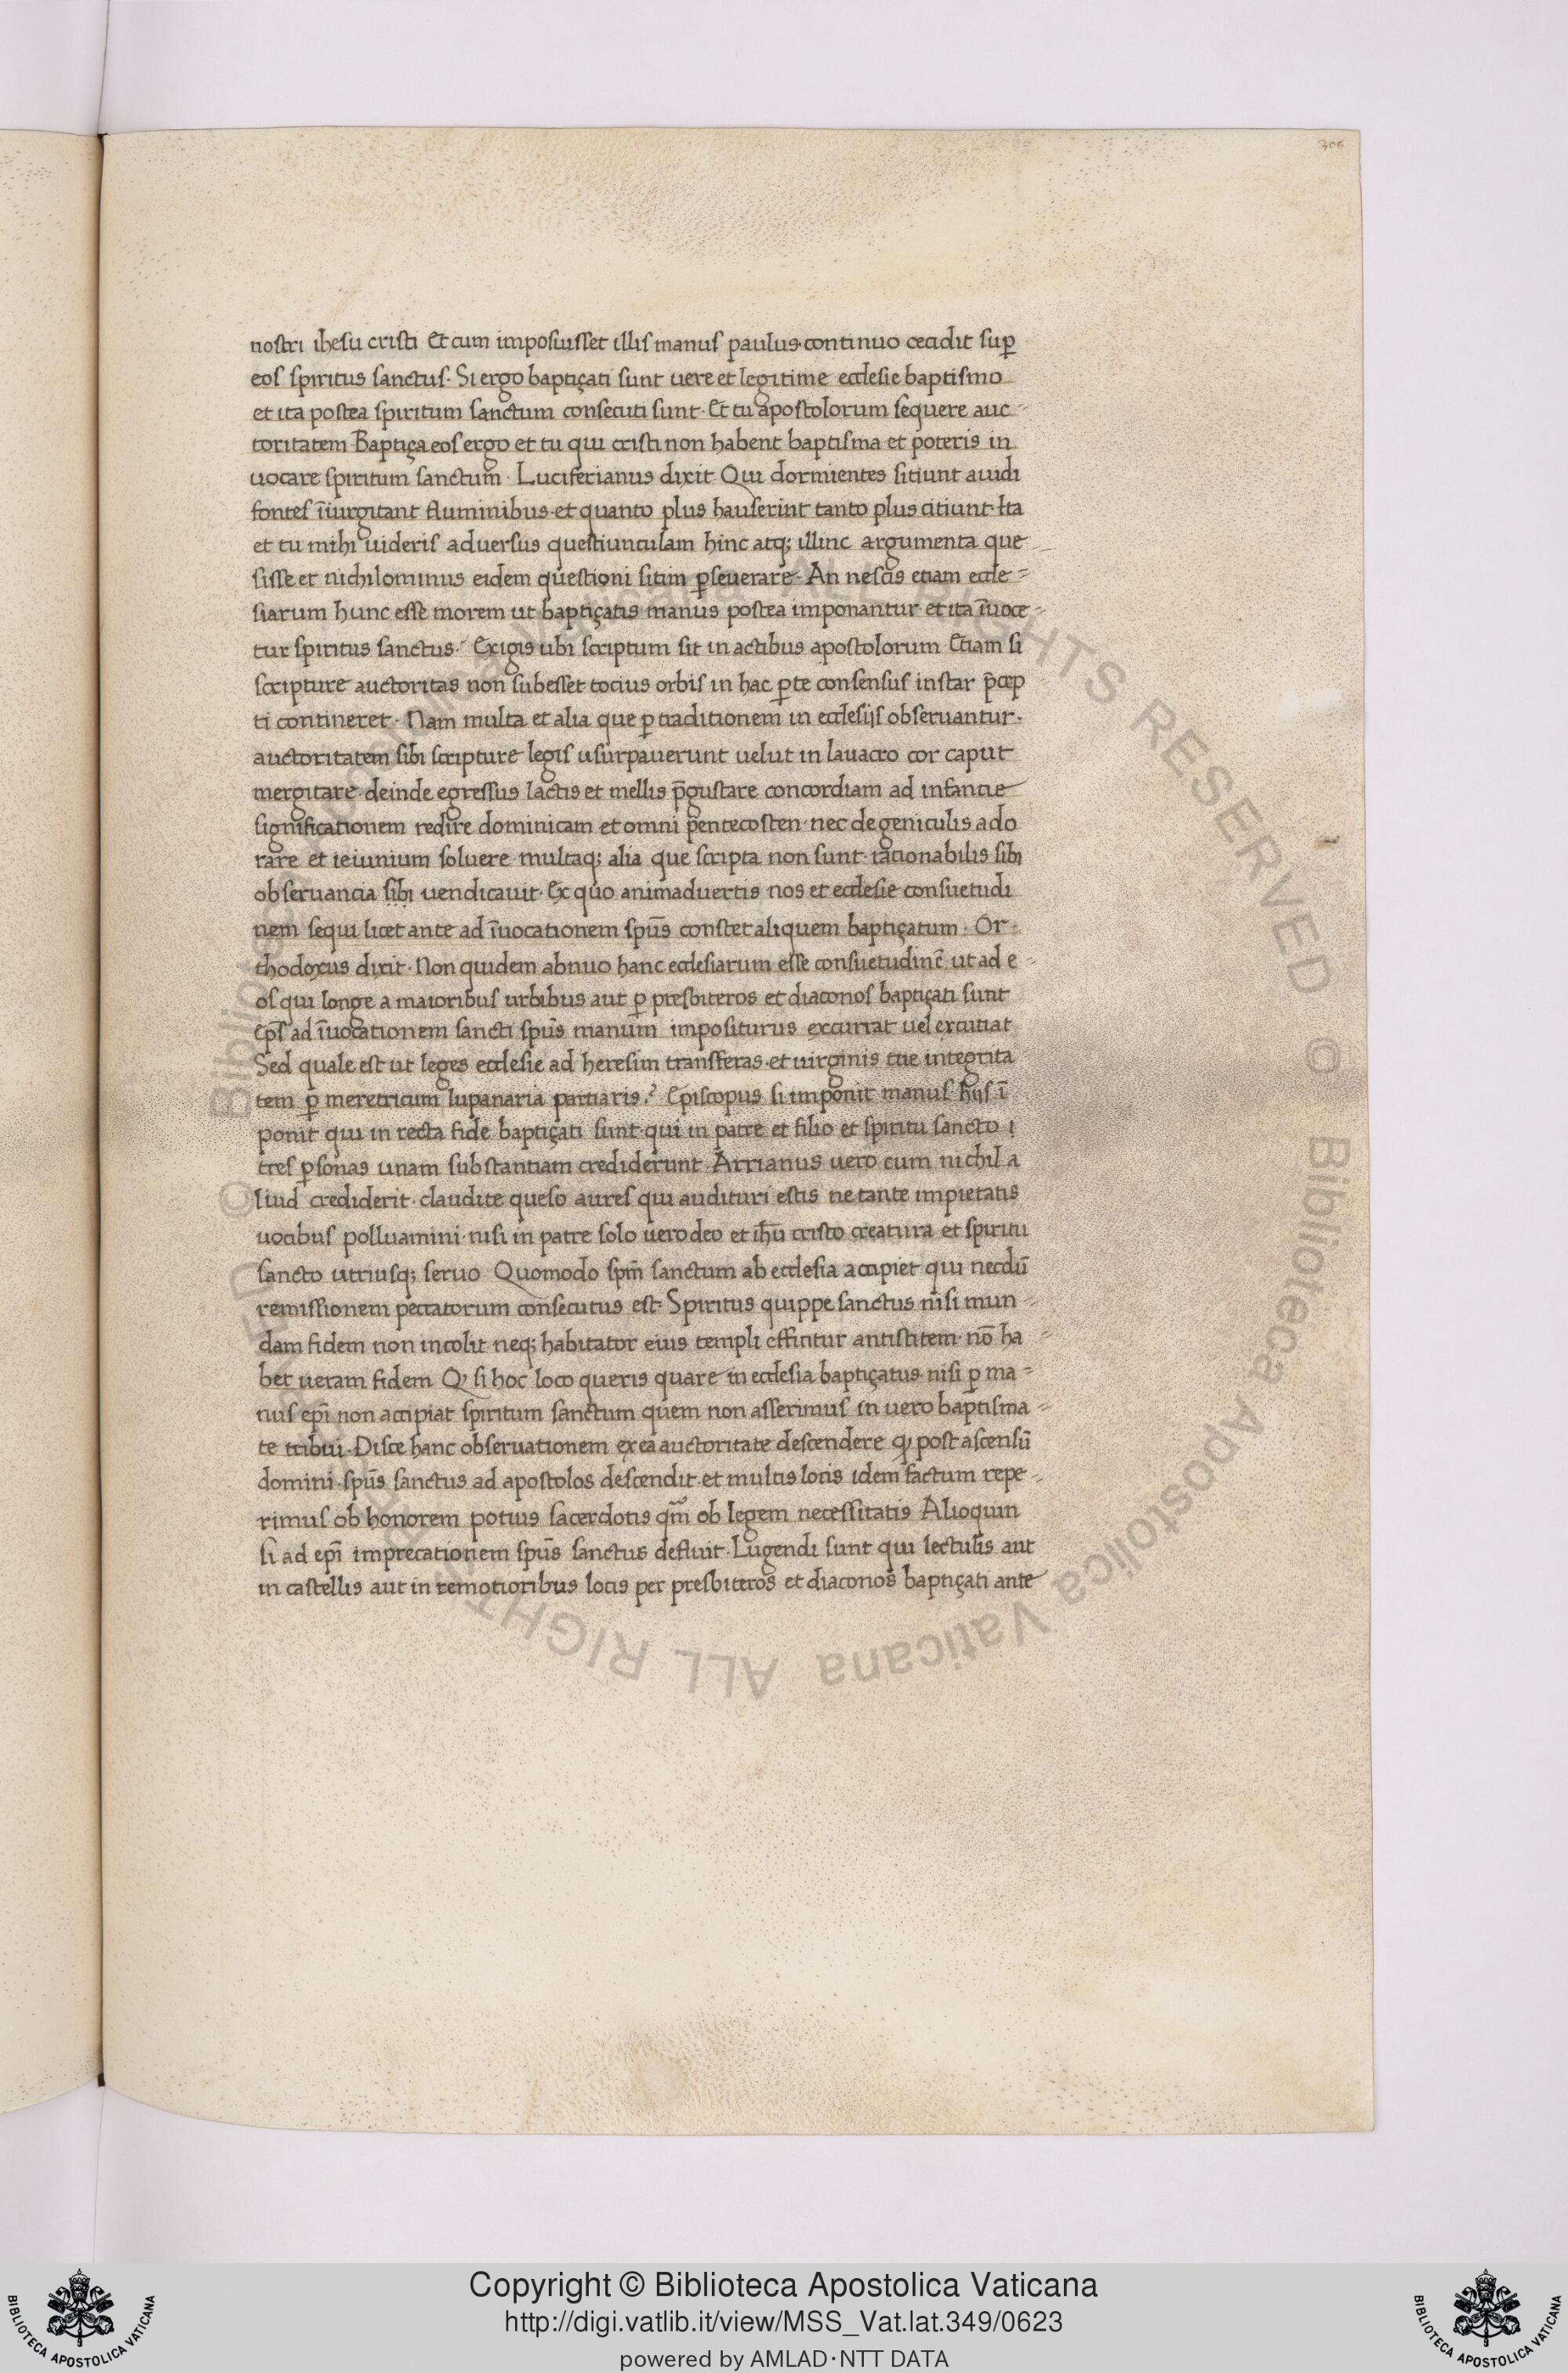 306
nostri ihesu cristi Et cum imposuisset illis manus paulus · continuo cecidit sup̲
eos spiritus sanctus · Si ergo baptiçati sunt uere et legitime ecclesie baptismo
et ita postea spiritum sanctum consecuti sunt · Et tu apostolorum sequere auc-
toritatem Baptiça eos ergo et tu qui cristi non habent baptisma et poteris in
uocare spiritum sanctum · Luciferianus dixit Qui dormientes sitiunt auidi
fontes īiurgitant fluminibus · et quanto plus hauserint tanto plus citiunt · Ita
et tu mihi uideris aduersus questiunculam hinc atq; illinc argumenta que
sisse et nichilominus eidem questioni sitim p̲seuerare · An nescis etiam eccle-
siarum hunc esse morem ut baptiçatis manus postea imponantur et ita īuoce-
tur spiritus sanctus · Exigis ubi scriptum sit in actibus apostolorum Etiam si
scripture auctoritas non subesset tocius orbis in hac p̲te consensus instar p̄cep
ti contineret · Nam multa et alia que p̲ traditionem in ecclesijs obseruantur ·
auctoritatem sibi scripture legis usurpauerunt uelut in lauacro cor caput
mergitare · deinde egressus lactis et mellis p̄gustare concordiam ad infancie
significationem redire dominicam et omni pentecosten · nec de geniculis ado
rare et ieiunium soluere multaq; alia que scripta non sunt · racionabilis sibi
obseruancia sibi uendicauit · Ex quo animaduertis nos et ecclesie consuetudi
nem sequi licet ante ad īuocationem sp̄us constet aliquem baptiçatum · Or-
thodoxus dixit · Non quidem abnuo hanc ecclesiarum esse consuetudinē ut ad e-
os qui longe a maioribus urbibus aut p̲ presbiteros et diaconos baptiçati sunt
Ep̄s ad īuocationem sancti sp̄us manum impositurus excurrat uel excutiat
Sed quale est ut leges ecclesie ad heresim transferas · et uirginis tue integrita
tem p̲ meretricum lupanaria partiaris ? Episcopus si imponit manus hijs ī
ponit qui in recta fide baptiçati sunt · qui in patre et filio et spiritu sancto ı
tres p̲sonas unam substantiam crediderunt · Arrianus uero cum nichil a
liud crediderit · claudite queso aures qui audituri estis ne tante impietatis
uocibus polluamini · nisi in patre solo uero deo et ih̄u cristo creatura et spiritu
sancto utriusq; seruo Quomodo sp̄m sanctum ab ecclesia accipiet qui necdū
remissionem peccatorum consecutus est · Spiritus quippe sanctus nisi mun-
dam fidem non incolit neq; habitator eius templi efficitur antistitem · nō ha-
bet ueram fidem Qꝫ si hoc loco queris quare in ecclesia baptiçatus nisi p̲ ma-
nus ep̄i non accipiat spiritum sanctum quem non asserimus in uero baptisma-
te tribui · Disce hanc obseruationem ex ea auctoritate descendere qꝫ post ascensū
domini · sp̄us sanctus ad apostolos descendit · et multis locis idem factum repe-
rimus ob honorem potius sacerdotis qm̄ ob legem necessitatis Alioquin
si ad ep̄i imprecationem sp̄us sanctus defluit · Lugendi sunt qui lectulis aut
in castellis aut in remotioribus locis per presbiteros et diaconos baptiçati ante
© Biblioteca Apostolica Vaticana ALL RIGHTS RESERVED © Biblioteca Apostolica Vaticana ALL RIGHTS RESERVED
Copyright © Biblioteca Apostolica Vaticana
http://digi.vatlib.it/view/MSS_Vat.lat.349/0623
powered by AMLAD·NTT DATA
BIBLIOTECA APOSTOLICA VATICANA
BIBLIOTECA APOSTOLICA VATICANA